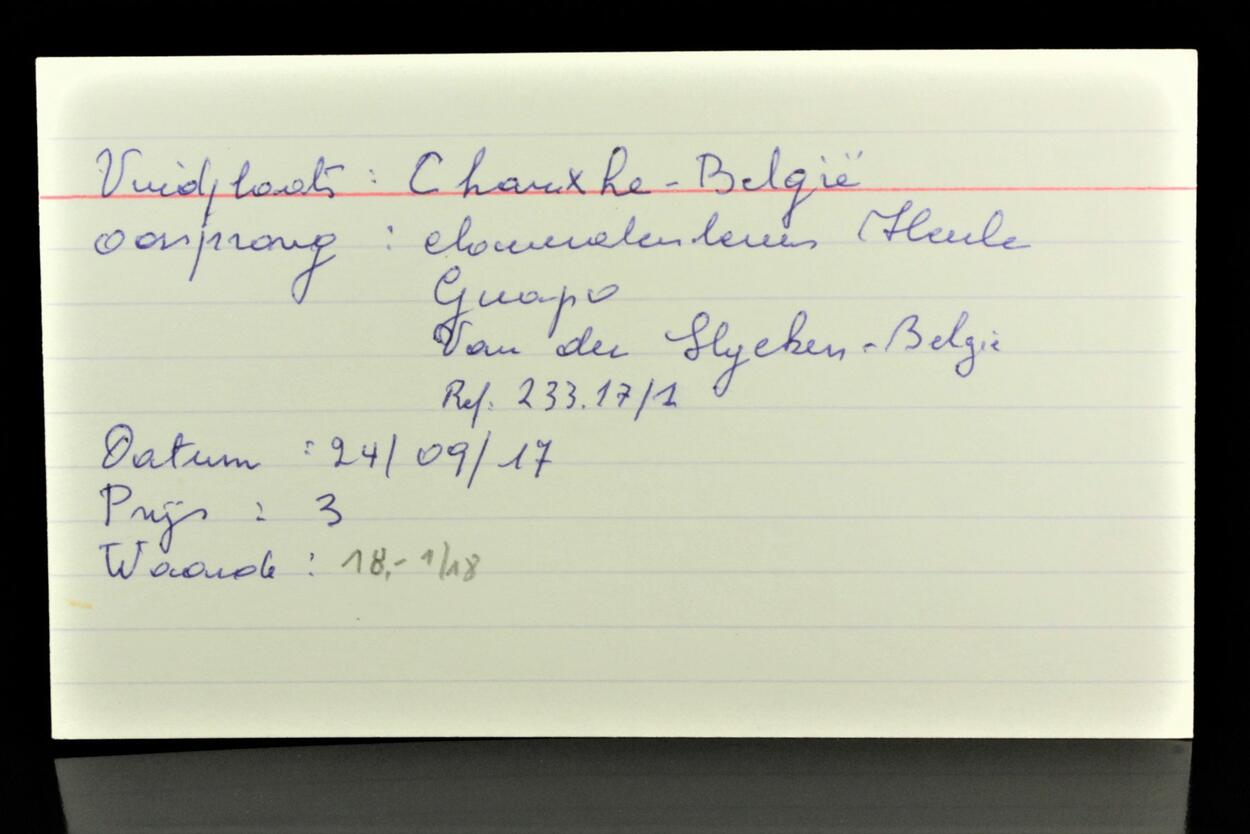 Vindplaats : Chanxhe - België
oorsprong : Heule
Guapo
Van der Slycken - Belgie
Ref. 233.17/1
Datum : 24/09/17
Prijs : 3
Waarde : 18,- 1/18